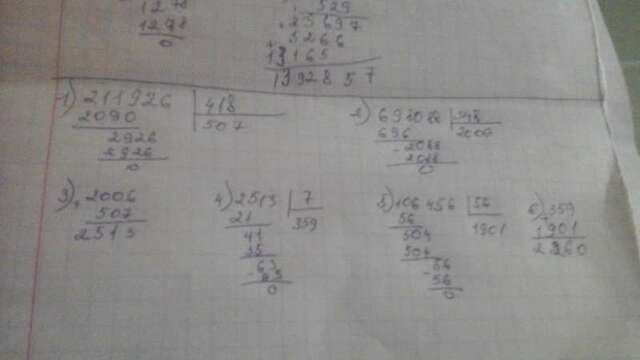 1278
1278
0
529
25697
5266
13165
1392857
1) 211926 | 418
2090 507
2926
2926
0
2) 698088 | 348
696 2006
2088
2088
0
3) 2006
+ 507
2513
4) 2513 | 7
21 359
41
35
63
- 63
0
5) 106456 | 56
56 1901
504
504
56
- 56
0
6) 359
+ 1901
2260